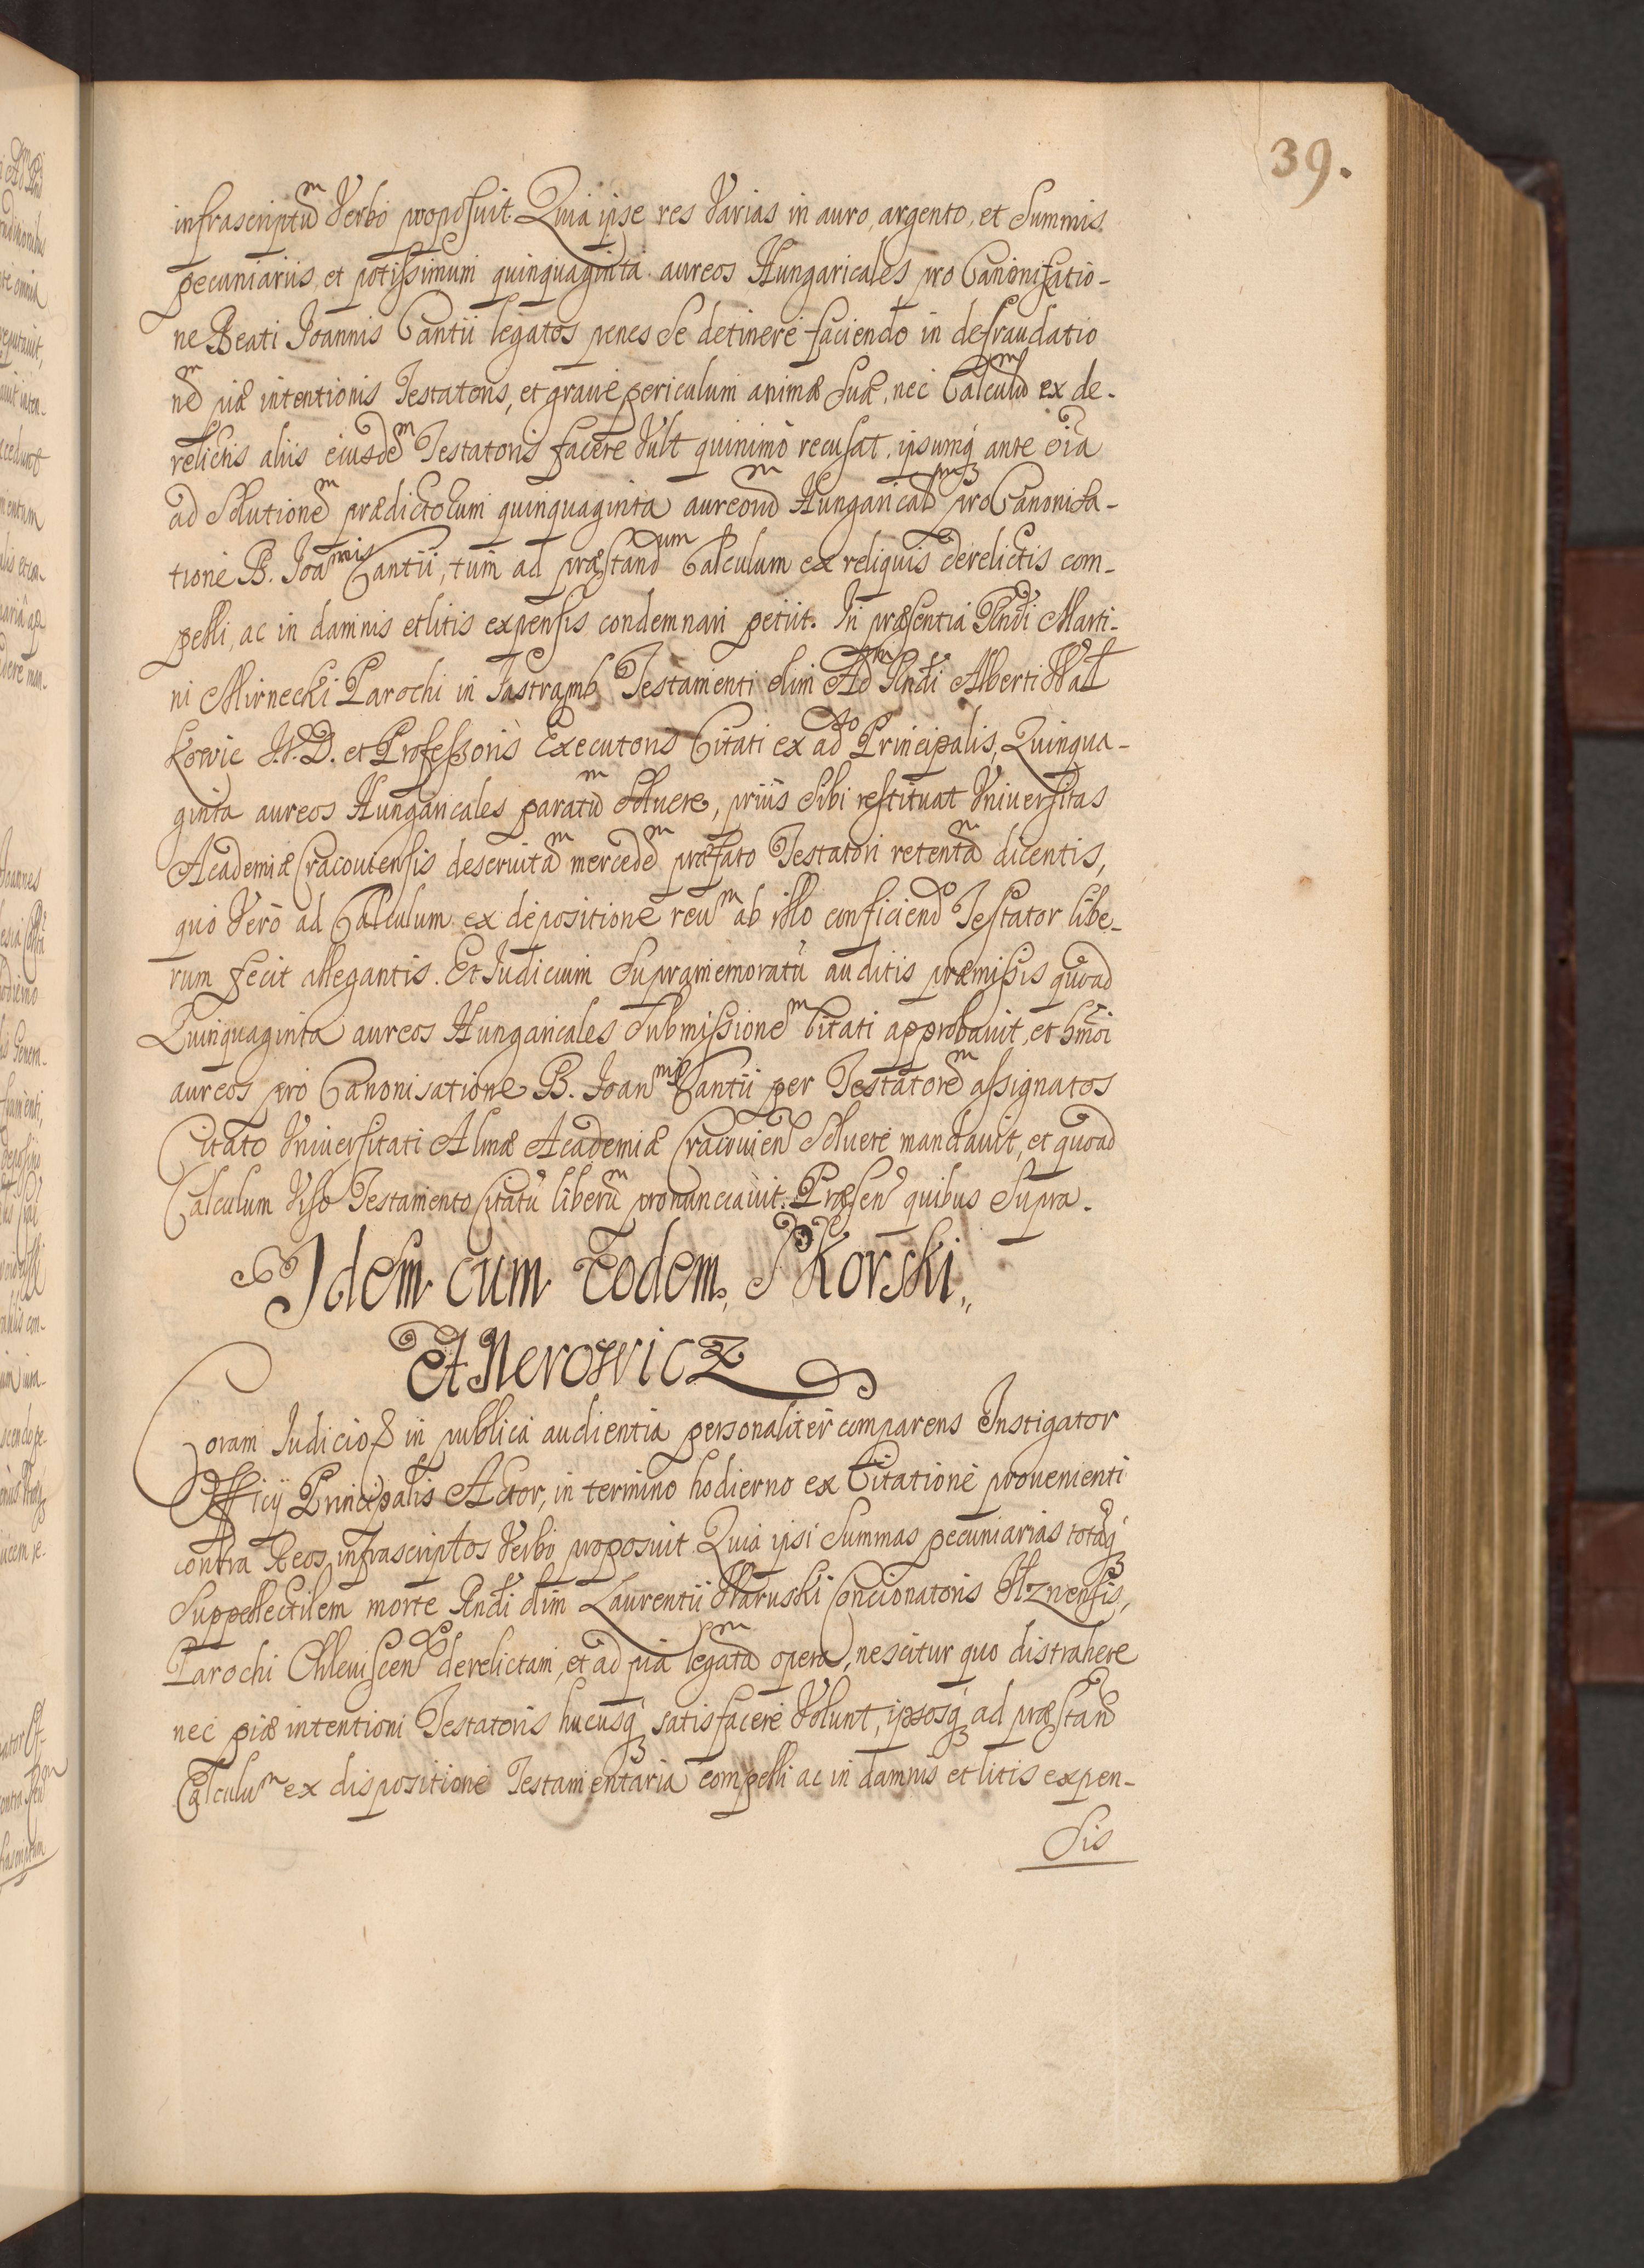 39.
infrascriptu͞m Verbo proposuit. Quia ipse res Varias in auro, argento, et Summis
pecuniariis, et potissimum quinquaginta aureos Hungaricales pro Canonisatio-
ne Beati Joannis Cantii legatos penes Se detinere faciendo in defraudatio
nem piæ intentionis Testatoris, et graue periculum animæ Suæ, nec Calculum ex de-
relictis aliis eiusdem Testatoris facere Vult quinimo recusat, ipsumq ante oīa
ad Solutionem prædictorum quinquaginta aureorum Hungarical pro Canonisa-
tione B. Joannis Cantii, tum ad præstandum Calculum ex reliquis derelictis com-
pelli, ac in damnis et litis expensis condemnari petiit. In præsentia Rndi Marti-
ni Mirnecki Parochi in Jastramb Testamenti olim Adm Rndi Alberti Wal
kowic J.V.D. et Professoris Executoris Citati ex ado Principalis, Quinqua-
ginta aureos Hungaricales paratum Soluere, prius Sibi restituat Vniuersitas
Academiæ Cracouiensis deseruitam mercedem præfato Testatori retentam dicentis,
quo Vero ad Calculum ex depositione rerum ab illo conficiend Testator libe-
rum fecit allegantis. Et Judicium Supramemoratū auditis præmissis quoad
Quinquaginta aureos Hungaricales Submissionem Citati approbauit, et hmōi
aureos pro Canonisatione B. Joannis Cantii per Testatorem assignatos
Citato Vniuersitati Almæ Academiæ Cracouien Soluere mandauit, et quoad
Calculum Viso Testamento Citatū liberum pronunciauit. Præsen quibus Supra.
Idem cum Eodem, Skorski,
Et Nerowicz
Coram Judicio & in publica audientia personaliter comparens Instigator
Officij Principalis Actor, in termino hodierno ex Citatione prouenienti
contra Reos infrascriptos Verbo proposuit. Quia ipsi Summas pecuniarias totāq
Suppellectilem morte Rndi olim Laurentii Waruski Concionatoris Ilznensis,
Parochi Chleuiscen derelictam, et ad pia legatam opera, nescitur quo distrahere
nec piæ intentioni Testatoris hucusq satisfacere Volunt, ipsosq ad præstand
Calculum ex dispositione Testamentaria compelli ac in damnis et litis expen-
Sis